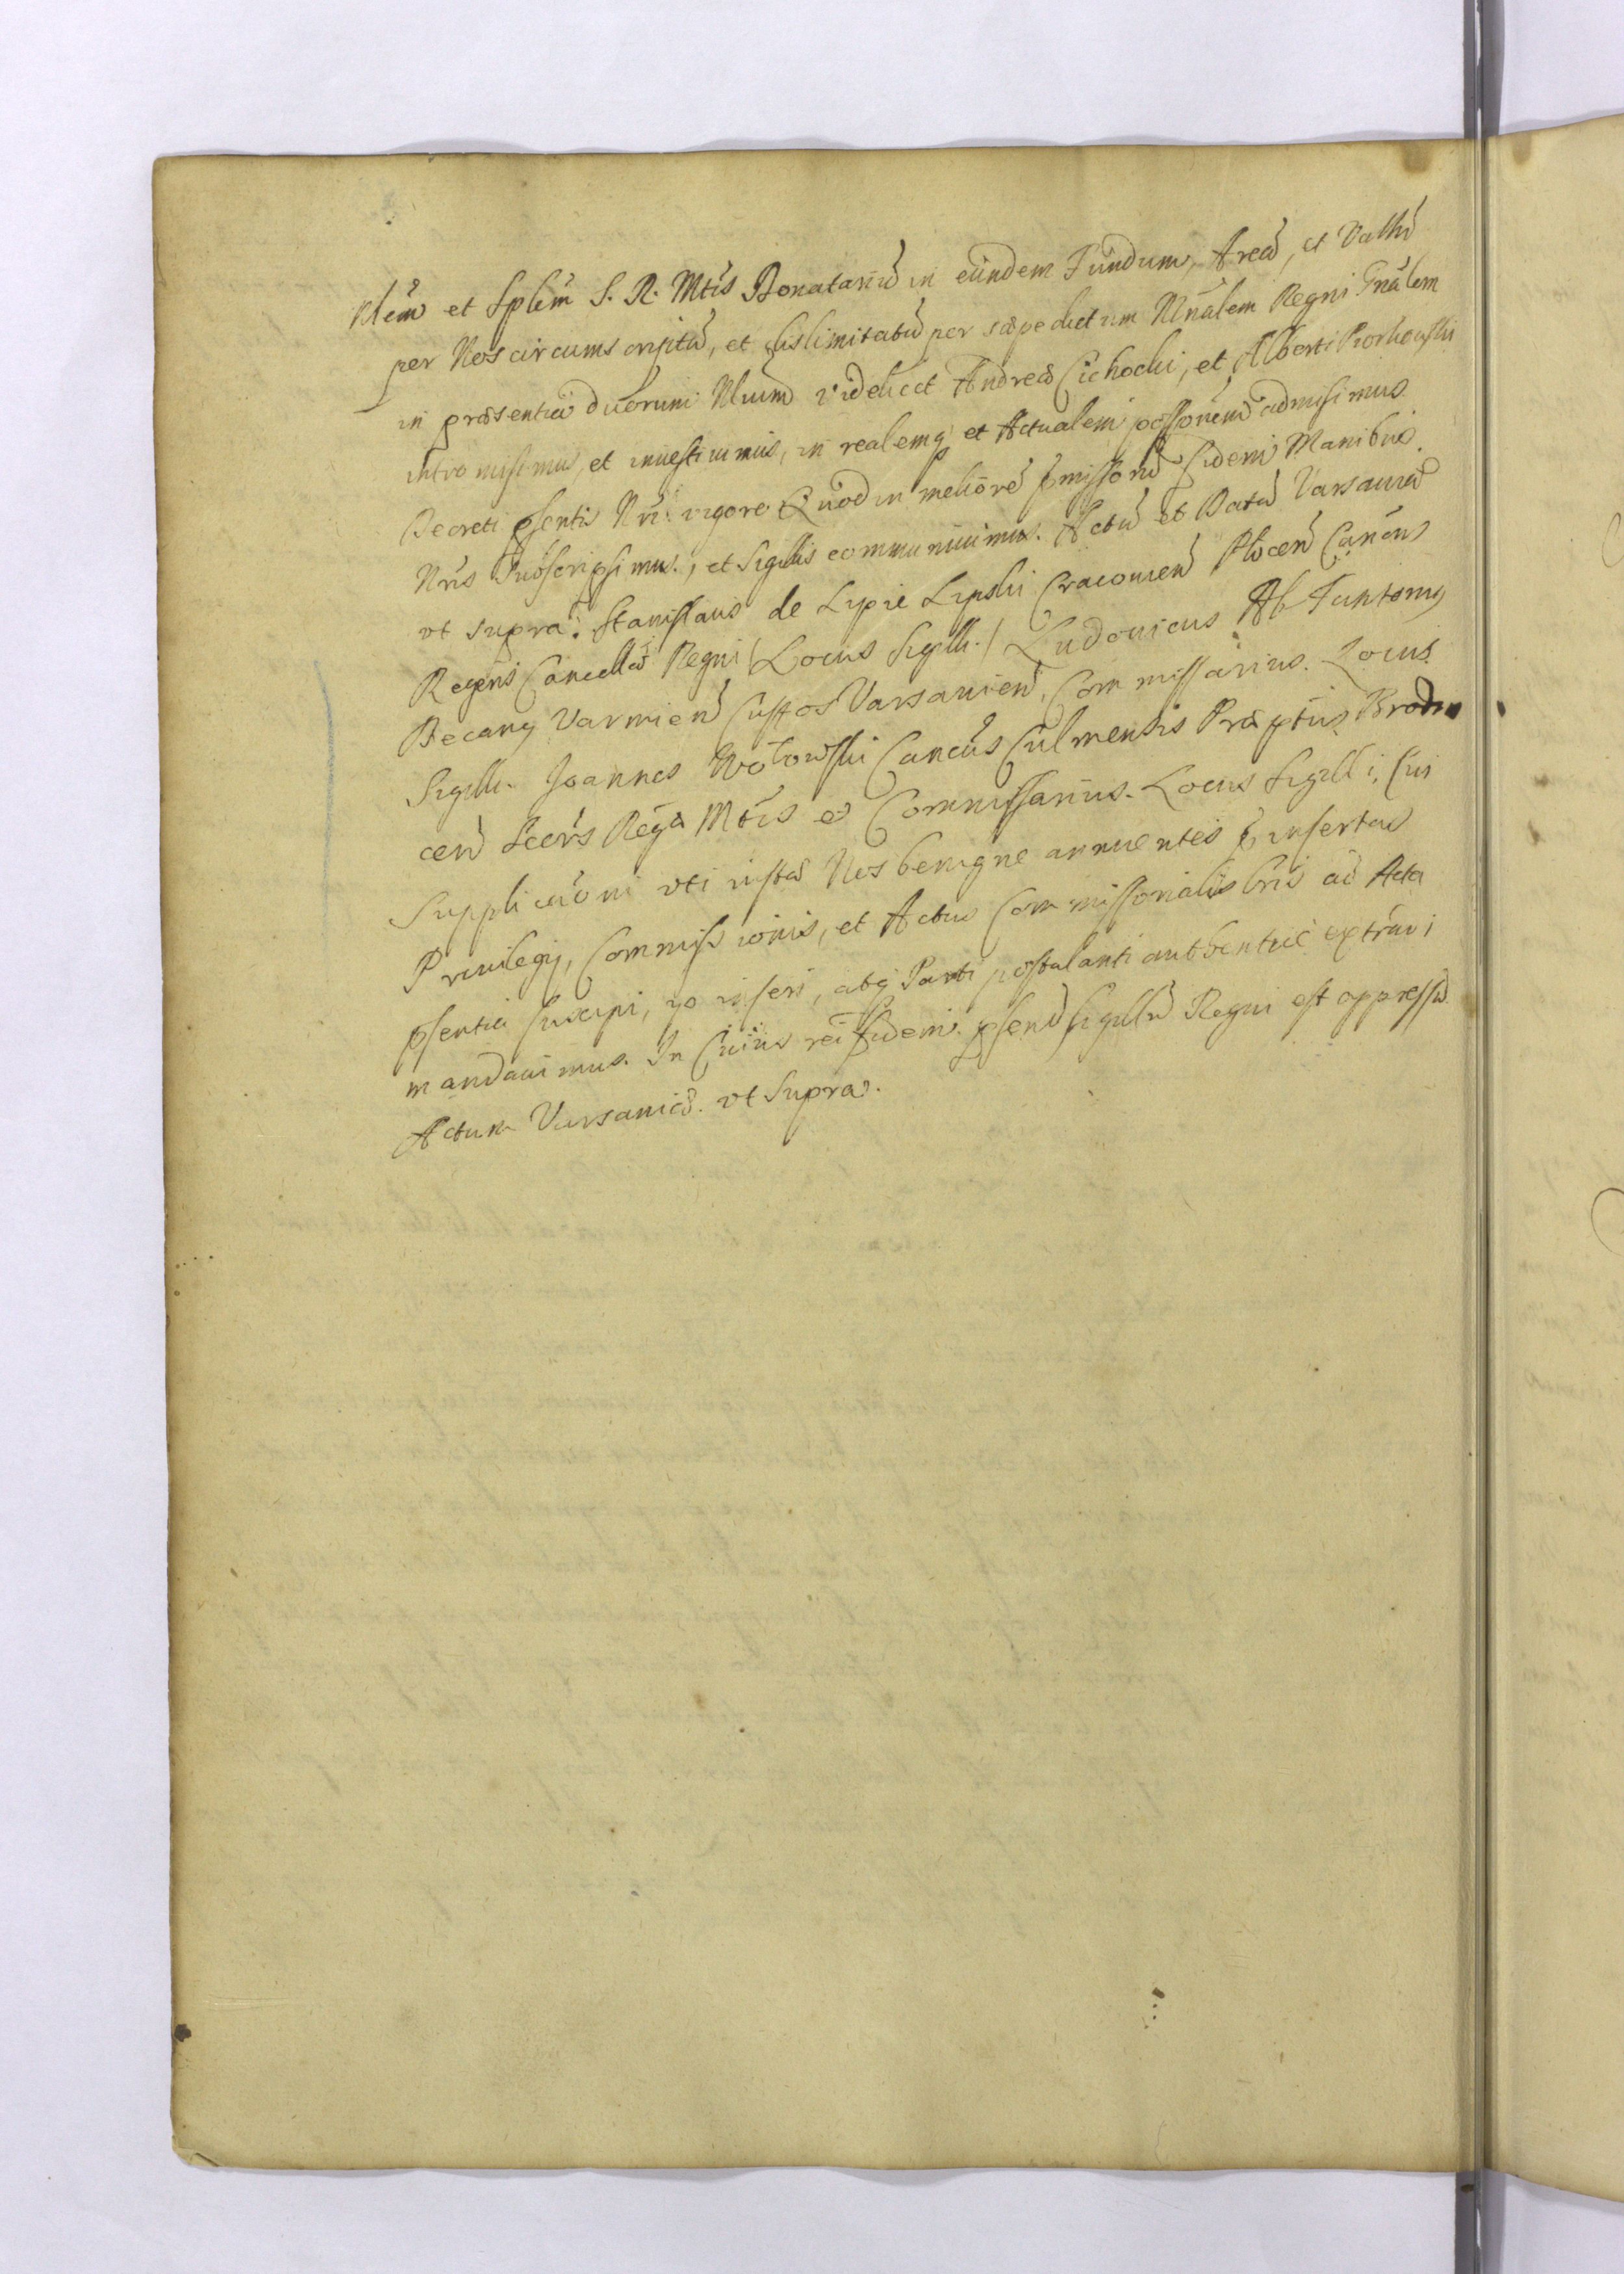 Nlem et Splem S. R. Mtis Donatariu in eundem Fundum, Area, et Vallu
per Nos circumscriptu, et dislimitatu per sæpedictum Mnalem Regni Gnalem
in præsentia duorum Nlium videlicet Andreæ Cichocki, et Alberti Piorkowski
intromisimus, et inuestiuimus, in realemq et Actualem possionem admisimus
Decreti psentis Nri vigore Quod in meliore pmissoru fidem Manibus
Nris subscripsimus, et Sigillis communiuimus. Actu et Datu Varsauiæ
vt supra. Stanislaus de Lipie Lipski Cracouien Plocen Cancus
Regens Cancellæ Regni (Locus Sigilli.) Ludouicus Ab Fantonis
Decang Varmien Custos Varsauien, Commissarius. Locus
Sigilli. Joannes Wołowski Cancus Culmensis Præptus Brodni
cen Secrs Regæ Mtis et Commissarius. Locus Sigilli, Cui
Supplicaoni vti iustæ Nos benigne annuentes pinsertas
Priuilegij, Commissionis, et Actus Commissorialis lris ad Acta
psentia suscipi, ijs inseri, atq Parti postulanti authentice extradi
mandauimus. In Cuius rei fidem psen sigillu Regni est appressu.
Actum Varsauiæ. vt Supra.